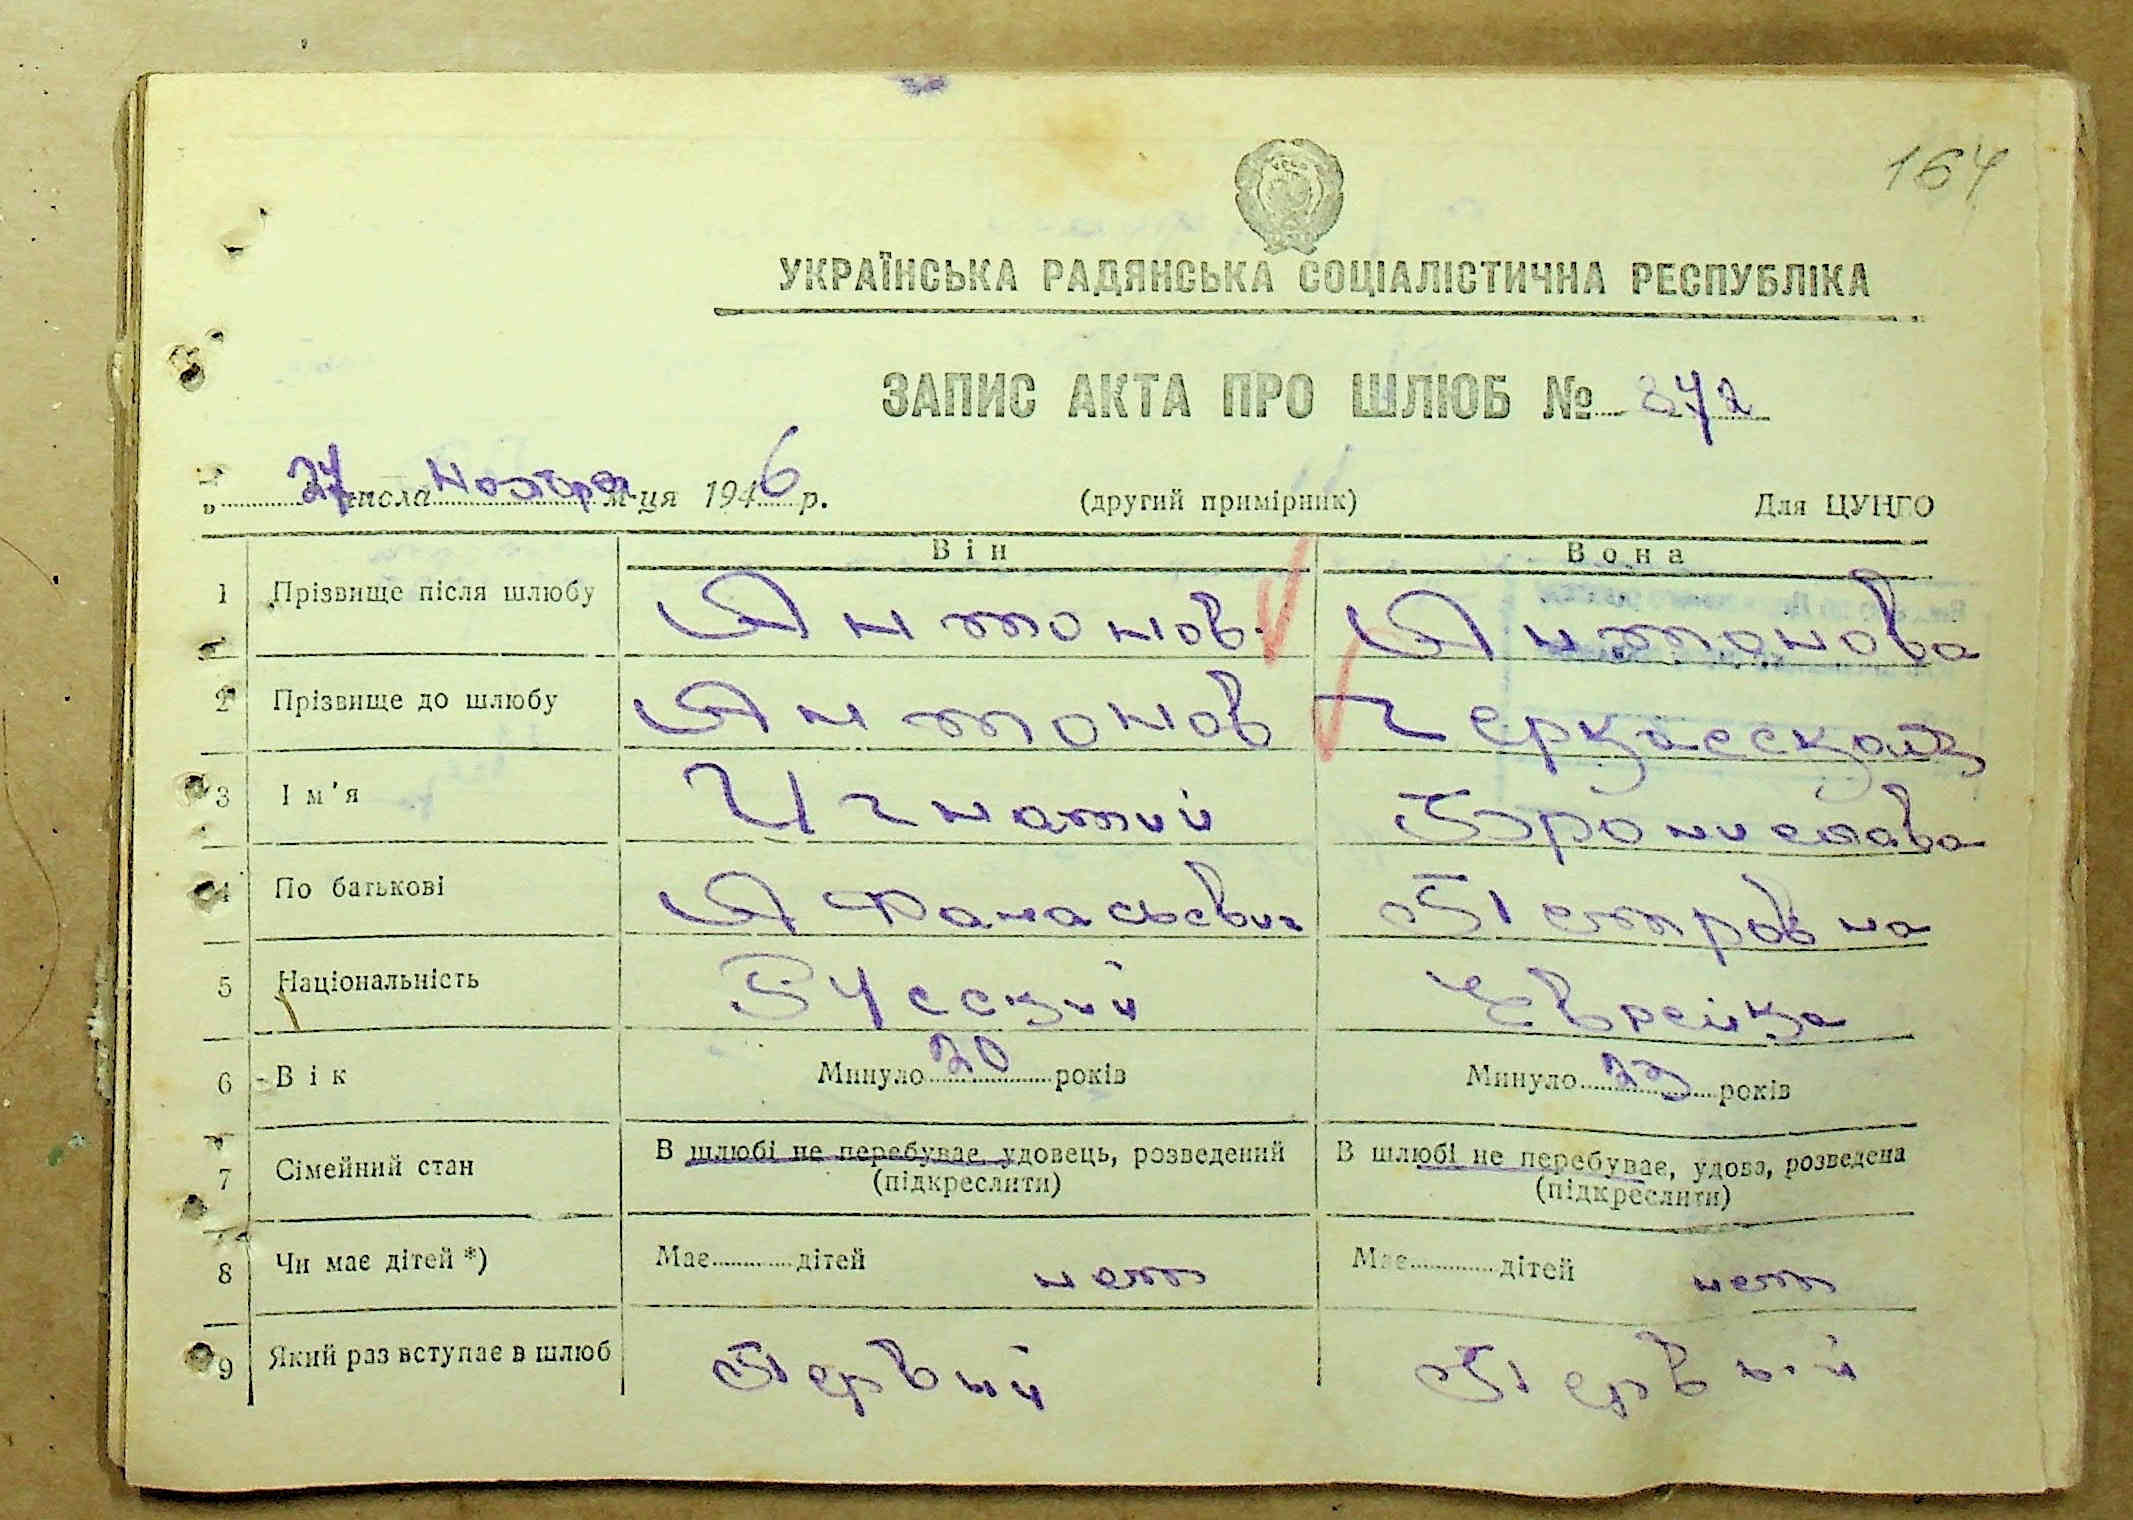 164
УКРАЇНСЬКА РАДЯНСЬКА СОЦІАЛІСТИЧНА РЕСПУБЛІКА
ЗАПИС АКТА ПРО ШЛЮБ № 372
27 числа Ноября м-ця 1946 р. (другий примірник) Для ЦУНГО
Він Вона
1 Прізвище після шлюбу Антонов Антонова
2 Прізвище до шлюбу Антонов Черкасская
3 Ім'я Игнатий Бронислава
4 По батькові Афанасьевич Петровна
5 Національність Русский Еврейка
6 Вік Минуло 20 років Минуло 23 років
7 Сімейний стан В шлюбі не перебуває, удовець, розведений В шлюбі не перебуває, удова, розведена
(підкреслити) (підкреслити)
8 Чи має дітей *) Має дітей нет Має дітей нет
9 Який раз вступає в шлюб Первый Первый